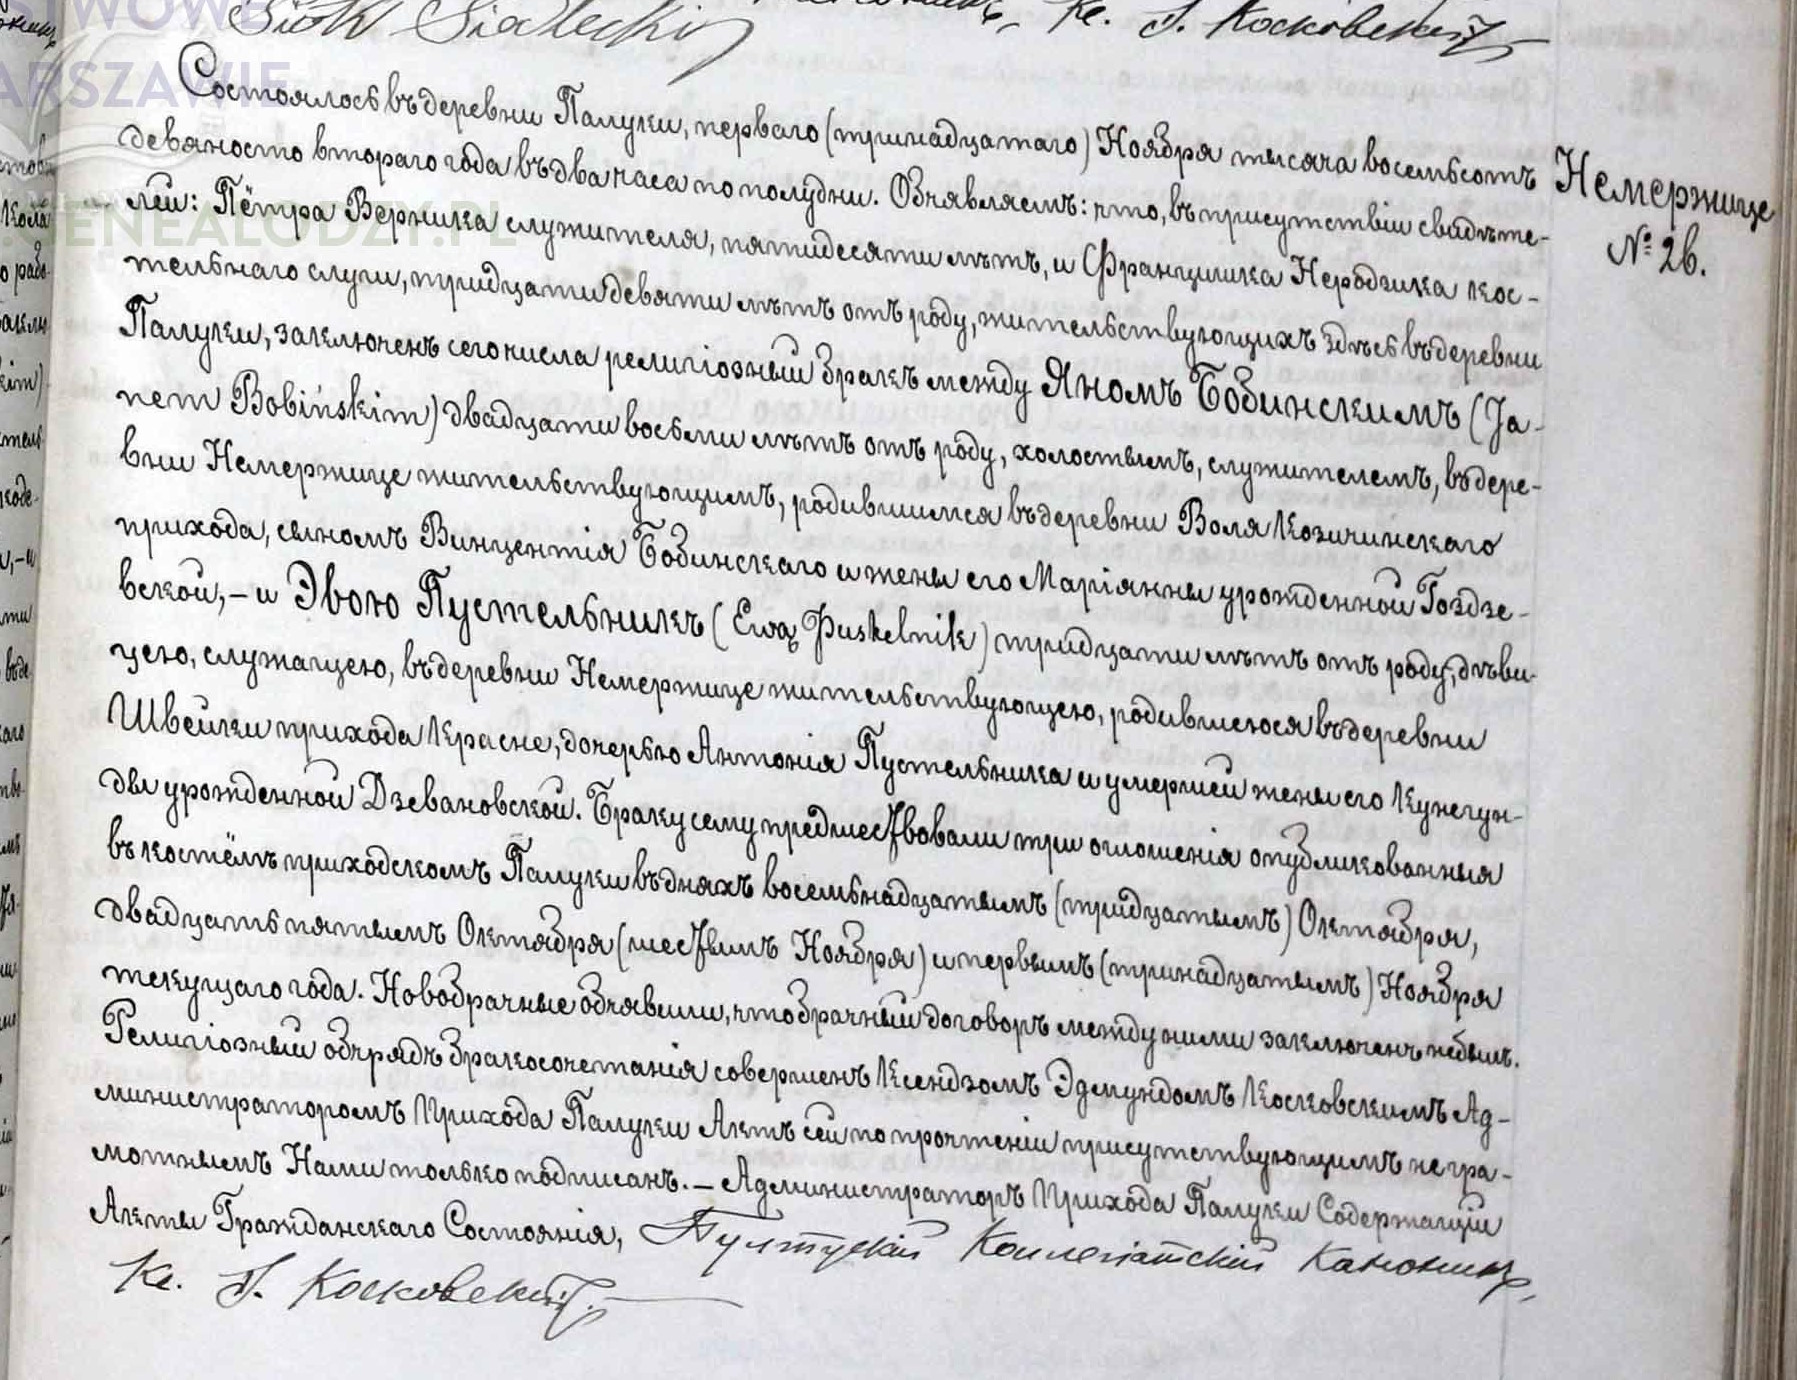 Piotr Siatecki Кс. Э. Косковский
Состоялось въ деревни Палуки, перваго (тринадцатаго) Ноября тысяча восемьсотъ
девяносто втораго года въ два часа по полудни. Объявляемъ: что, въ присутствіи свидѣте-
лей: Пётра Верника служителя, пятидесяти лѣтъ, и Францишка Неродзика кос-
тельнаго слуги, тридцати девяти лѣтъ отъ роду, жительствующихъ здѣсь въ деревни
Палуки, заключенъ сего числа религіозный бракъ между Яномъ Бобинскимъ (Ja-
nem Bobińskim) двадцати восьми лѣтъ отъ роду, холостымъ, служителемъ, въ дере-
вни Немержице жительствующимъ, родившимся въ деревни Воля Козичинскаго
прихода, сыномъ Винцентія Бобинскаго и жены его Маріянны урожденной Гоздзе-
вской, – и Эвою Пустельникъ (Ewą Pustelnik) тридцати лѣтъ отъ роду, дѣви-
цею, служащею, въ деревни Немержице жительствующею, родившеюся въ деревни
Швейки прихода Красне, дочерью Антонія Пустельника и умершей жены его Кунегун-
ды урожденной Дзевановской. Браку сему предшествовали три оглошенія опубликованныя
въ костёлѣ приходскомъ Палуки въ дняхъ восемьнадцатымъ (тридцатымъ) Октября,
двадцать пятымъ Октября (шестымъ Ноября) и первымъ (тринадцатымъ) Ноября
текущаго года. Новобрачные объявили, что брачный договоръ между ними заключенъ небылъ.
Религіозный обърядъ бракосочетанія совершенъ Ксендзомъ Эдмундомъ Косковскимъ Ад-
министраторомъ Прихода Палуки Актъ сей по прочтеніи присутствующимъ негра-
мотнымъ Нами только подписанъ. – Администраторъ Прихода Палуки Содержащій
Акты Гражданскаго Состоянія, Пултускій Коллегіатскій Каноникъ,
Кс. Э. Косковскій.
Немержице
№ 26.
GENEALODZY.PL